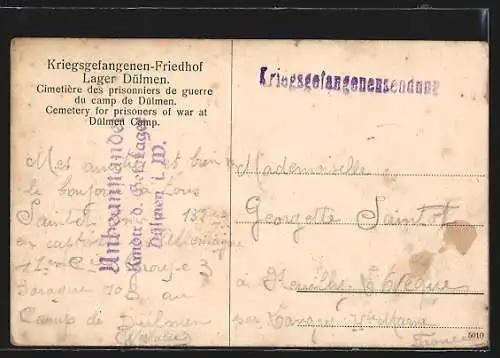 Kriegsgefangenen-Friedhof
Lager Dülmen.
Cimetière des prisonniers de guerre
du camp de Dülmen.
Cemetery for prisoners of war at
Dülmen Camp.
Kriegsgefangenensendung
Unbeanstandet
Kmdtr. d. Gef. Lager
Dülmen i. W.
Mes amitiés et bien
le bonjour à tous
en captivité Allemagne
Groupe 3
Baraque 10
Camp de Dülmen
Mademoiselle
Georgette
à Neuilly l'Evêque
par Langres Hte Marne
France
5010